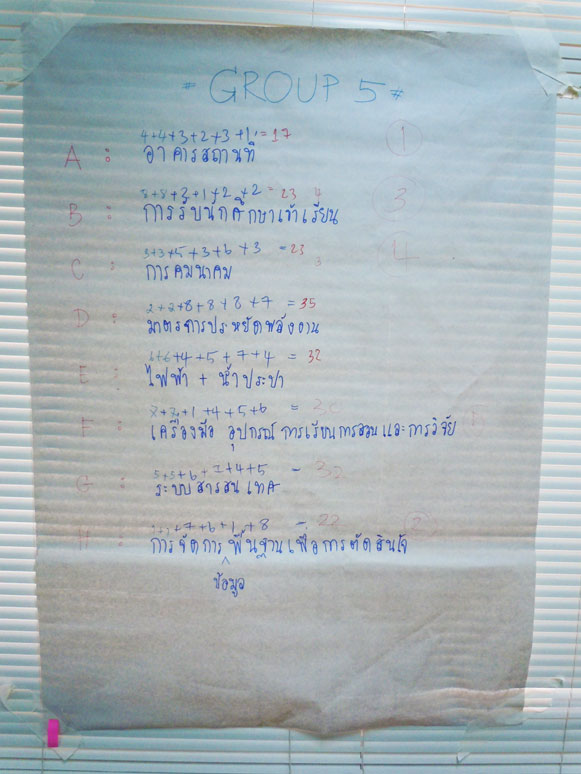 = GROUP 5 =
4+4+3+2+3+1 = 17
A : อาคารสถานที่ 1
8+8+2+1+2+2 = 23 4
B : การรับนักศึกษาเข้าเรียน 3
3+3+5+3+6+3 = 23 3
C : การคมนาคม 4
2+2+8+8+8+7 = 35
D : มาตรการประหยัดพลังงาน
6+6+4+5+7+4 = 32
E : ไฟฟ้า + น้ำประปา
+1+4+5+6 =
F : เครื่องมือ อุปกรณ์ การเรียนการสอนและการวิจัย
5+5+6+7+4+5 = 32
G : ระบบสารสนเทศ
1+1+7+6+1+8 =
H : การจัดการพื้นฐานเพื่อการตัดสินใจ
ข้อมูล